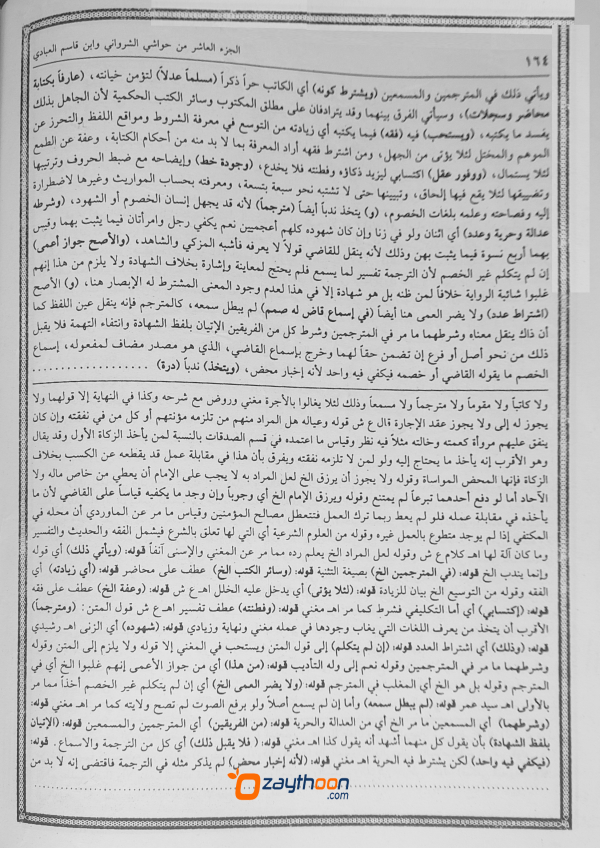 ١٦٤
الجزء العاشر من حواشي الشرواني وابن قاسم العبادي
ويأتي ذلك في المترجمين والمسمعين (ويشترط كونه) أي الكاتب حراً ذكراً (مسلماً عدلاً) لتؤمن خيانته، (عارفاً بكتابة
محاضر وسجلات)، وسيأتي الفرق بينهما وقد يترادفان على مطلق المكتوب وسائر الكتب الحكمية لأن الجاهل بذلك
يفسد ما يكتبه، (ويستحب) فيه (فقه) فيما يكتبه أي زيادته من التوسع في معرفة الشروط ومواقع اللفظ والتحرز عن
الموهم والمختل لئلا يؤتى من الجهل، ومن اشترط فقهه أراد المعرفة بما لا بد منه من أحكام الكتابة، وعفة عن الطمع
لئلا يستمال، (ووفور عقل) اكتسابي ليزيد ذكاؤه وفطنته فلا يخدع، (وجودة خط) وإيضاحه مع ضبط الحروف وترتيبها
وتضييقها لئلا يقع فيها إلحاق، وتبيينها حتى لا تشتبه نحو سبعة بتسعة، ومعرفته بحساب المواريث وغيرها لاضطراره
إليه وفصاحته وعلمه بلغات الخصوم، (و) يتخذ ندباً أيضاً (مترجماً) لأنه قد يجهل إنسان الخصوم أو الشهود، (وشرطه
عدالة وحرية وعدد) أي اثنان ولو في زنا وإن كان شهوده كلهم أعجميين نعم يكفي رجل وامرأتان فيما يثبت بهما وقيس
بهما أربع نسوة فيما يثبت بهن وذلك لأنه ينقل للقاضي قولاً لا يعرفه فأشبه المزكي والشاهد، (والأصح جواز أعمى)
إن لم يتكلم غير الخصم لأن الترجمة تفسير لما يسمع فلم يحتج لمعاينة وإشارة بخلاف الشهادة ولا يلزم من هذا إنهم
غلبوا شائبة الرواية خلافاً لمن ظنه بل هو شهادة إلا في هذا لعدم وجود المعنى المشترط له الإبصار هنا، (و) الأصح
(اشتراط عدد) ولا يضر العمى هنا أيضاً (في إسماع قاض له صمم) لم يبطل سمعه، كالمترجم فإنه ينقل عين اللفظ كما
أن ذاك ينقل معناه وشرطهما ما مر في المترجمين وشرط كل من الفريقين الإتيان بلفظ الشهادة وانتفاء التهمة فلا يقبل
ذلك من نحو أصل أو فرع إن تضمن حقاً لهما وخرج بإسماع القاضي، الذي هو مصدر مضاف لمفعوله، إسماع
الخصم ما يقوله القاضي أو خصمه فيكفي فيه واحد لأنه إخبار محض، (ويتخذ) ندباً (درة) ..................
ولا كاتباً ولا مقوماً ولا مترجماً ولا مسمعاً وذلك لئلا يغالوا بالأجرة مغني وروض مع شرحه وكذا في النهاية إلا قولهما ولا
يجوز له إلى ولا يجوز عقد الإجارة قال ع ش قوله وعياله هل المراد منهم من تلزمه مؤنتهم أو كل من في نفقته وإن كان
ينفق عليهم مروأة كعمته وخالته مثلاً فيه نظر وقياس ما اعتمده في قسم الصدقات بالنسبة لمن يأخذ الزكاة الأول وقد يقال
وهو الأقرب إنه يأخذ ما يحتاج إليه ولو لمن لا تلزمه نفقته ويفرق بأن هذا في مقابلة عمل قد يقطعه عن الكسب بخلاف
الزكاة فإنها المحض المواساة وقوله ولا يجوز أن يرزق الخ لعل المراد به لا يجب على الإمام أن يعطي من خاص ماله ولا
الآحاد أما لو دفع أحدهما تبرعاً لم يمتنع وقوله ويرزق الإمام الخ أي وجوباً وإن وجد ما يكفيه قياساً على القاضي لأن ما
يأخذه في مقابلة عمله فلو لم يعط ربما ترك العمل فتتعطل مصالح المؤمنين وقياس ما مر عن الماوردي أن محله في
المكتفي إذا لم يوجد متطوع بالعمل غيره وقوله من العلوم الشرعية أي التي لها تعلق بالشرع فيشمل الفقه والحديث والتفسير
وما كان آلة لها اهـ كلام ع ش وقوله لعل المراد الخ يعلم رده مما مر عن المغني والإسنى آنفاً قوله: (ويأتي ذلك) أي قوله
وإنما يندب الخ قوله: (في المترجمين الخ) بصيغة التثنية قوله: (وسائر الكتب الخ) عطف على محاضر قوله: (أي زيادته) أي
الفقه وقوله من التوسيع الخ بيان للزيادة قوله: (لئلا يؤتى) أي يدخل عليه الخلل اهـ ع ش قوله: (وعفة الخ) عطف على فقه
قوله: (إكتسابي) أي أما التكليفي فشرط كما مر اهـ مغني قوله: (وفطنته) عطف تفسير اهـ ع ش قول المتن: (ومترجماً)
الأقرب أن يتخذ من يعرف اللغات التي يغاب وجودها في عمله مغني ونهاية وزيادي قوله: (شهوده) أي الزنى اهـ رشيدي
قوله: (وذلك) أي اشتراط العدد قوله: (إن لم يتكلم) إلى قول المتن ويستحب في المغني إلا قوله ولا يلزم إلى المتن وقوله
وشرطهما ما مر في المترجمين وقوله نعم إلى وله التأديب قوله: (من هذا) أي من جواز الأعمى إنهم غلبوا الخ أي في
المترجم وقوله بل هو الخ أي المغلب في المترجم قوله: (ولا يضر العمى الخ) أي إن لم يتكلم غير الخصم أخذاً مما مر
بالأولى اهـ سيد عمر قوله: (لم يبطل سمعه) وأما إن لم يسمع أصلاً ولو برفع الصوت لم تصح ولايته كما مر اهـ مغني قوله:
(وشرطهما) أي المسمعين ما مر الخ أي من العدالة والحرية قوله: (من الفريقين) أي المترجمين والمسمعين قوله: (الإتيان
بلفظ الشهادة) بأن يقول كل منهما أشهد أنه يقول كذا اهـ مغني قوله: (فلا يقبل ذلك) أي كل من الترجمة والاسماع. قوله:
(فيكفي فيه واحد) لكن يشترط فيه الحرية اهـ مغني قوله: (لأنه إخبار محض) لم يذكر مثله في الترجمة فاقتضى إنه لا بد من
zaythoon
.com